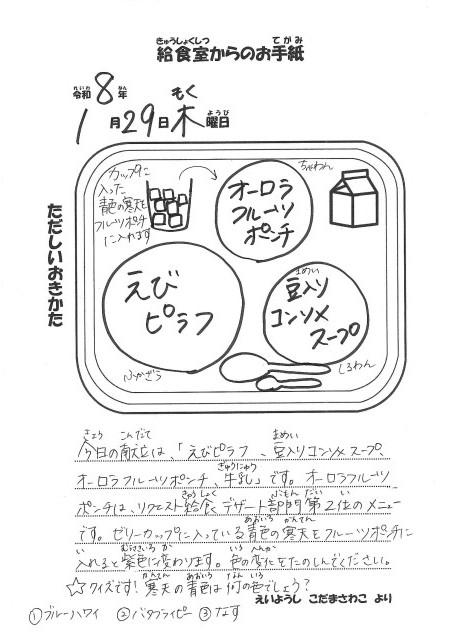 きゅうしょくしつ てがみ
給食室からのお手紙
れいわ ねん もく
令和8年
がつ にち ようび
1月29日木曜日
ただしいおきかた
カップ9に
入った
青色の寒天を
フルーツポンチ
に入れます
オーロラ
フルーツ
ポンチ
ちゃわん
えび
ピラフ
まめい
豆入り
コンソメ
スープ
ふかざら
しるわん
きょう こんだて まめい
今日の献立は、「えびピラフ、豆入りコンソメスープ、
ぎゅうにゅう
オーロラフルーツポンチ、牛乳」です。オーロラフルーツ
きゅうしょく ぶもん だい い
ポンチは、リクエスト給食デザート部門第2位のメニュー
あおいろ かんてん
です。ゼリーカップに入っている青色の寒天をフルーツポンチに
い むらさきいろ か いろ へんか
入れると紫色に変わります。色の変化をたのしんでください。
かんてん あおいろ なん いろ
☆クイズです!寒天の青色は何の色でしょう?
えいようし こだまさわこ より
①ブルーハワイ ②バタフライピー ③なす